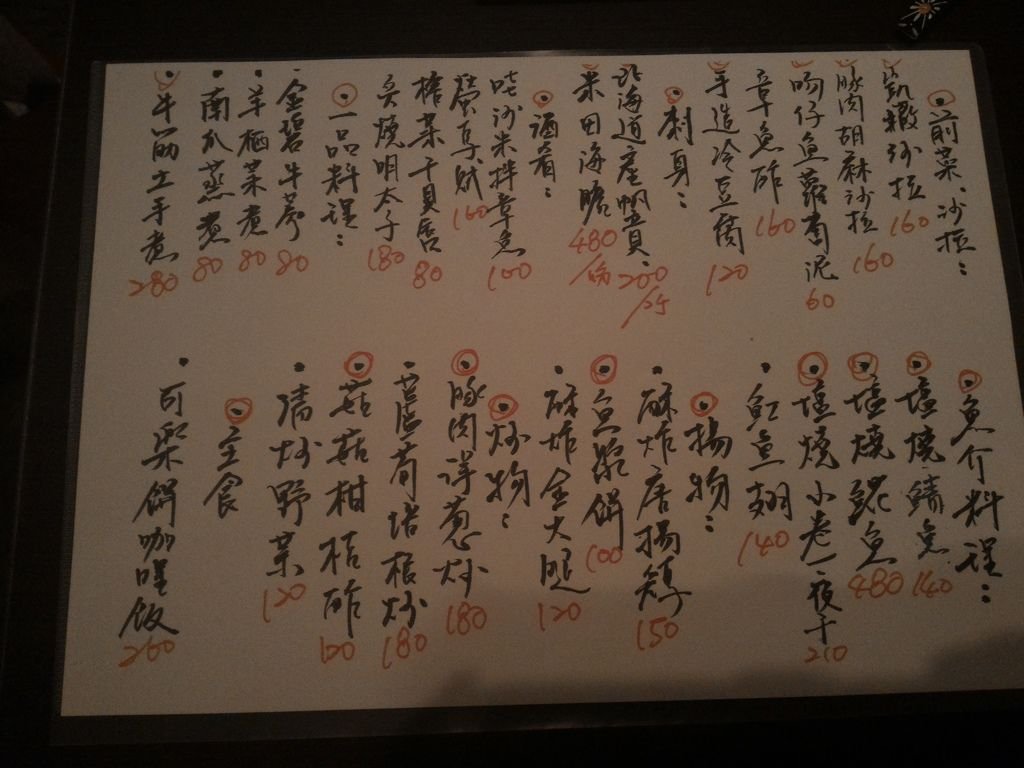 前菜、沙拉：
凱撒沙拉 160
豚肉胡麻沙拉 160
吻仔魚蘿蔔泥 60
章魚酢 160
手造冷豆腐 120
刺身：
北海道產帆立貝 200
海膽 480
酒肴：
沙米拌章魚 100
160
榨菜干貝唇 80
炙燒明太子 180
一品料理：
金碧牛蒡 80
羊栖菜煮 80
南瓜蒸煮 80
牛筋土手煮 280
魚介料理：
塩燒鯖魚 140
塩燒魚 480
塩燒小卷一夜干 210
魟魚翅 140
揚物：
酥炸唐揚雞 150
魚漿餅 100
酥炸全大腿 120
炒物：
豚肉洋蔥炒 180
蘆荀培根炒 180
菇菇柑桔酢 120
清炒野菜 120
主食
可樂餅咖哩飯 260